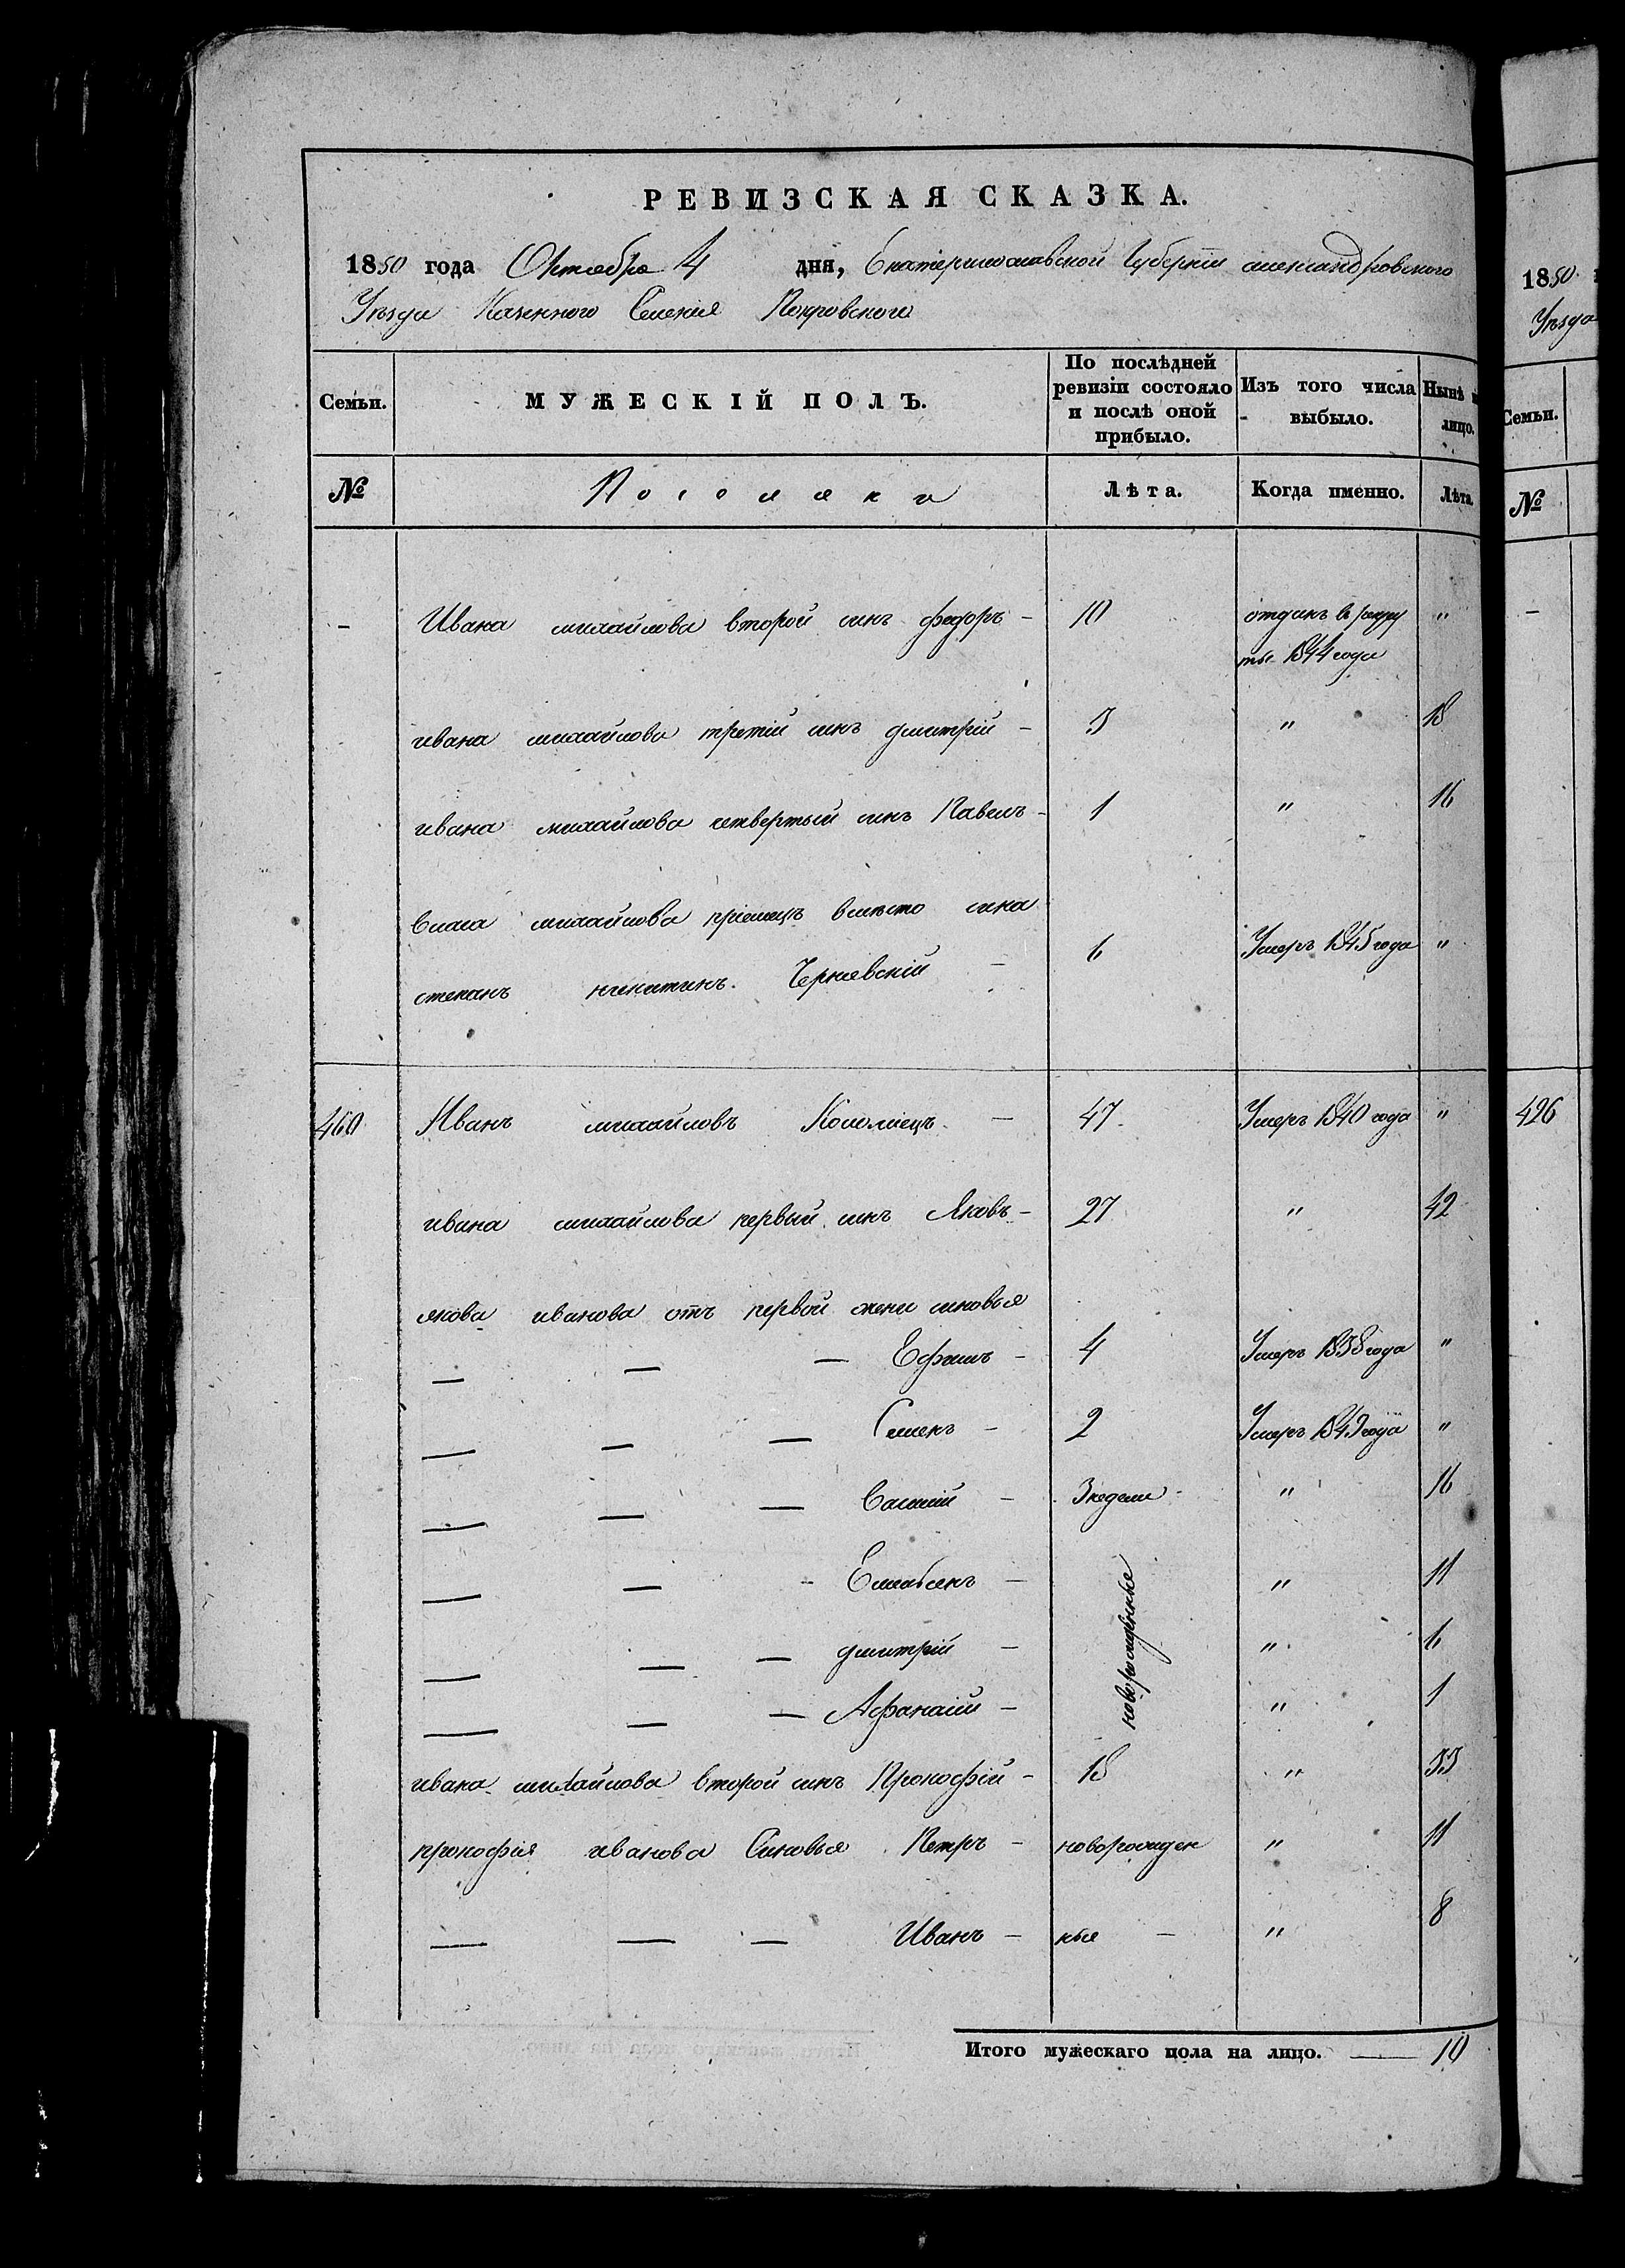 РЕВИЗСКАЯ СКАЗКА.
1850 года Октября 4 дня, Екатеринославской Губерніи александровского
Уѣзда Казенного Селенія Покровского
Семьи.
МУЖЕСКІЙ ПОЛЪ.
По послѣдней
ревизіи состояло
и послѣ оной
прибыло.
Изъ того числа
выбыло.
Нынѣ
лицо.
№
Поселяни
Лѣта.
Когда именно.
Лѣта
- Ивана михайлова второй синъ федоръ - 10 отданъ в рекру "
ты 1844 года
ивана михайлова третій синъ дмитрій - 3 " 18
ивана михайлова четвертый синъ Павелъ - 1 " 16
Власа михайлова пріемецъ вместо сина
степанъ никитинъ Чернявскій - 6 Умеръ 1845 года "
460 Иванъ михайловъ Коломіецъ - 47 Умеръ 1840 года "
ивана михайлова первый синъ Яковъ - 27 " 42
якова иванова отъ первой жени сыновья
— — — Ефимъ - 4 Умеръ 1838 года "
— — — Семенъ - 2 Умеръ 1843 года "
— — — Василій - 3 недели " 16
— — - Емабенъ - новорожденные " 11
— — — дмитрій - " 6
— — — Афанасій - " 1
ивана михайлова второй синъ Прокофій - 18 " 33
прокофія иванова Синовья Петръ - новорожден " 11
— — — Иванъ - ные - " 8
Итого мужескаго пола на лицо. — 10
1850
Уѣзда
Семьи.
№
-
426